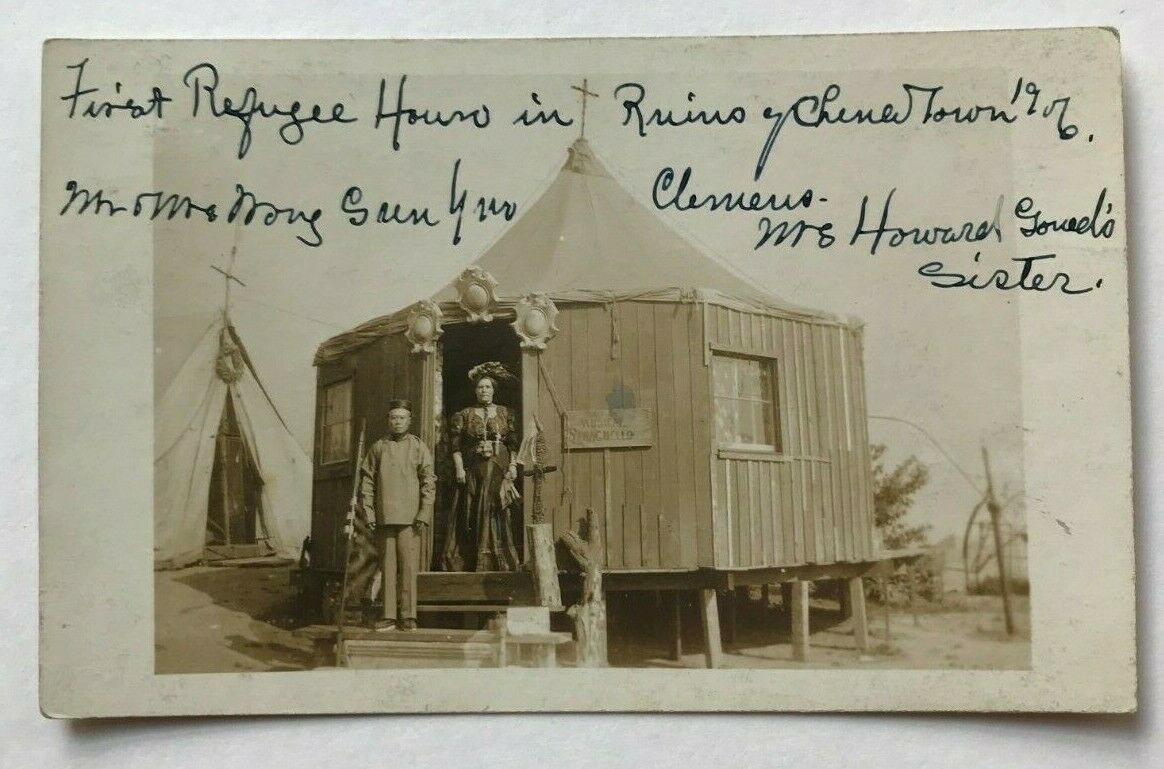 First Refugee House in Ruins of China Town 1906.
Mr & Mrs Wong Sun Yue Clemens.
Mrs Howard Gould's
Sister.
MUSICAL